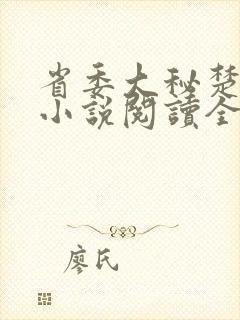 省委大秘楚
小說閱讀全
廖氏